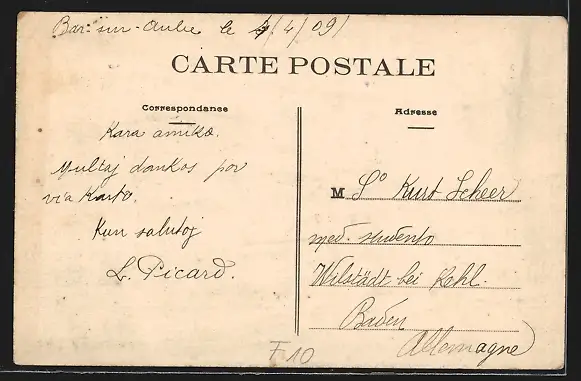 Bar-sur-Aube le 4/4/09
CARTE POSTALE
Correspondance
Adresse
Kara amiko.
Multaj dankos por
via Karto.
Kun salutoj
L. Picard.
M So Kurt Scheer
med. studento
Wilstädt bei Kehl.
Baden
Allemagne
F10